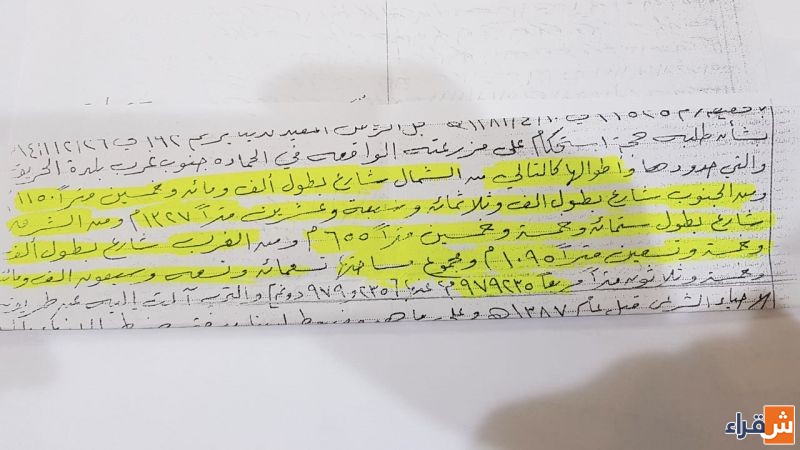 بشأن طلبه حجة استحكام على مزرعته الواقعه في الحماده جنوب غرب بلدة الحريق
والتي حدودها واطوالها كالتالي من الشمال شارع بطول ألف ومائه وخمسين متراً ١١٥٠
ومن الجنوب شارع بطول الف وثلاثمائه وسبعة وعشرين متراً ١٣٢٧م ومن الشرق
شارع بطول ستمائه وخمسة وخمسين متراً ٦٥٥م ومن الغرب شارع بطول ألف
وخمسة وتسعين متراً ١٠٩٥م ومجموع مساحتها تسعمائه وتسعه وسبعون الف ومائ
وخمسة وثلاثون متراً مربعاً ٩٧٩٢٣٥م٢ والتي آلت إليه عن طريق
الاحياء الشرعي قبل عام ١٣٨٧ه
شقراء